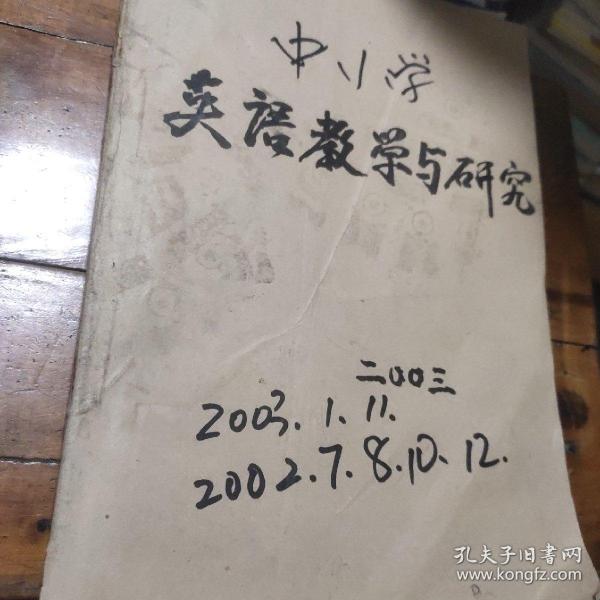 中小学
英語教学与研究
二00三
2003.1.11.
2002.7.8.10.12.
孔夫子旧书网
www.kongfz.com